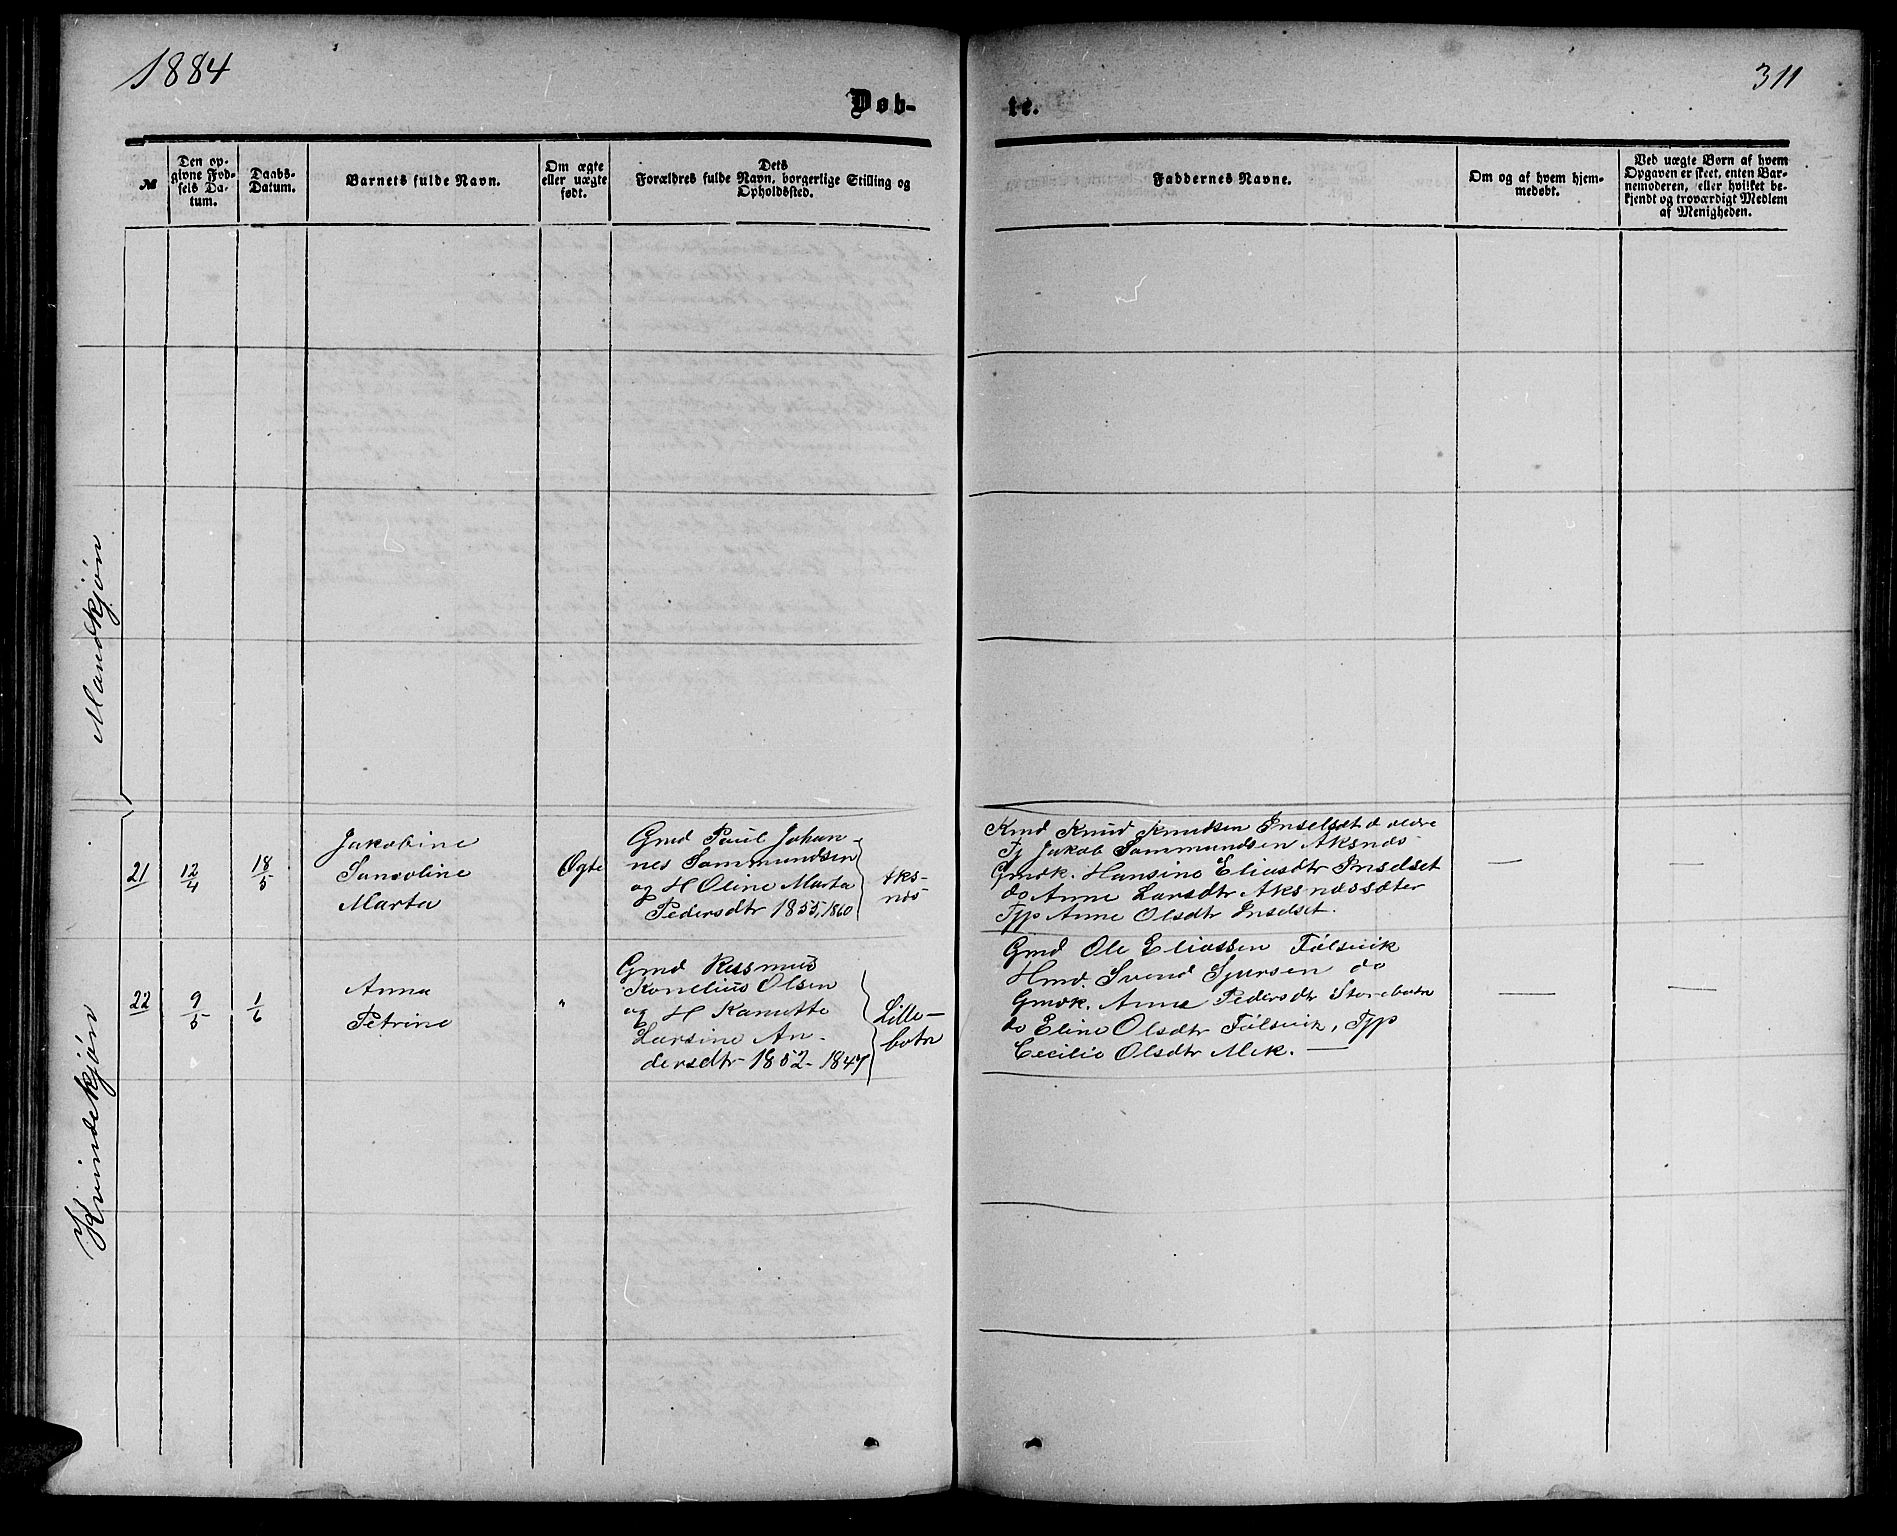 1884
311
Døb-
te.
№
Den op-
givne Fød-
sels Da-
tum.
Daabs-
Datum.
Barnets fulde Navn.
Om ægte
eller uægte
født.
Dets
Forældres fulde Navn, borgerlige Stilling og
Opholdssted.
Faddernes Navne.
Om og af hvem hjem-
medøbt.
Ved uægte Børn af hvem
Opgaven er skeet, enten Bar-
nemoderen, eller hvilket be-
kjendt og troværdigt Medlem
af Menigheden.
Mandkjøn
Kvindekjøn
21
12/4
18/5
Jakobine
Marta
Ægte
Gmd Paul Johan-
nes Sammundsen
og H Oline Marta
Pedersdtr 1855, 1860
Aks-
næs
Kmd Knud Knudsen Inselset d ældre
Tj Jakob Sammundsen Aksnæs
Gmdk. Hansine Eliasdtr Inselset
do Anne Larsdtr Aksnæssæter
Tjp Anne Olsdtr Inselset.
—
—
22
9/5
1/6
Anna
Petrine
"
Gmd Rasmus
Kornelius Olsen
og H Kanutte
Larsine An-
dersdtr 1852-1847
Lille-
botn
Gmd Ole Eliassen Følsvik
Hmd. Svend Sjursen do
Gmdk. Anne Pedersdtr Storebotn
do Eline Olsdtr Følsvik, Tjp
Cecilie Olsdtr Mek. —
—
—